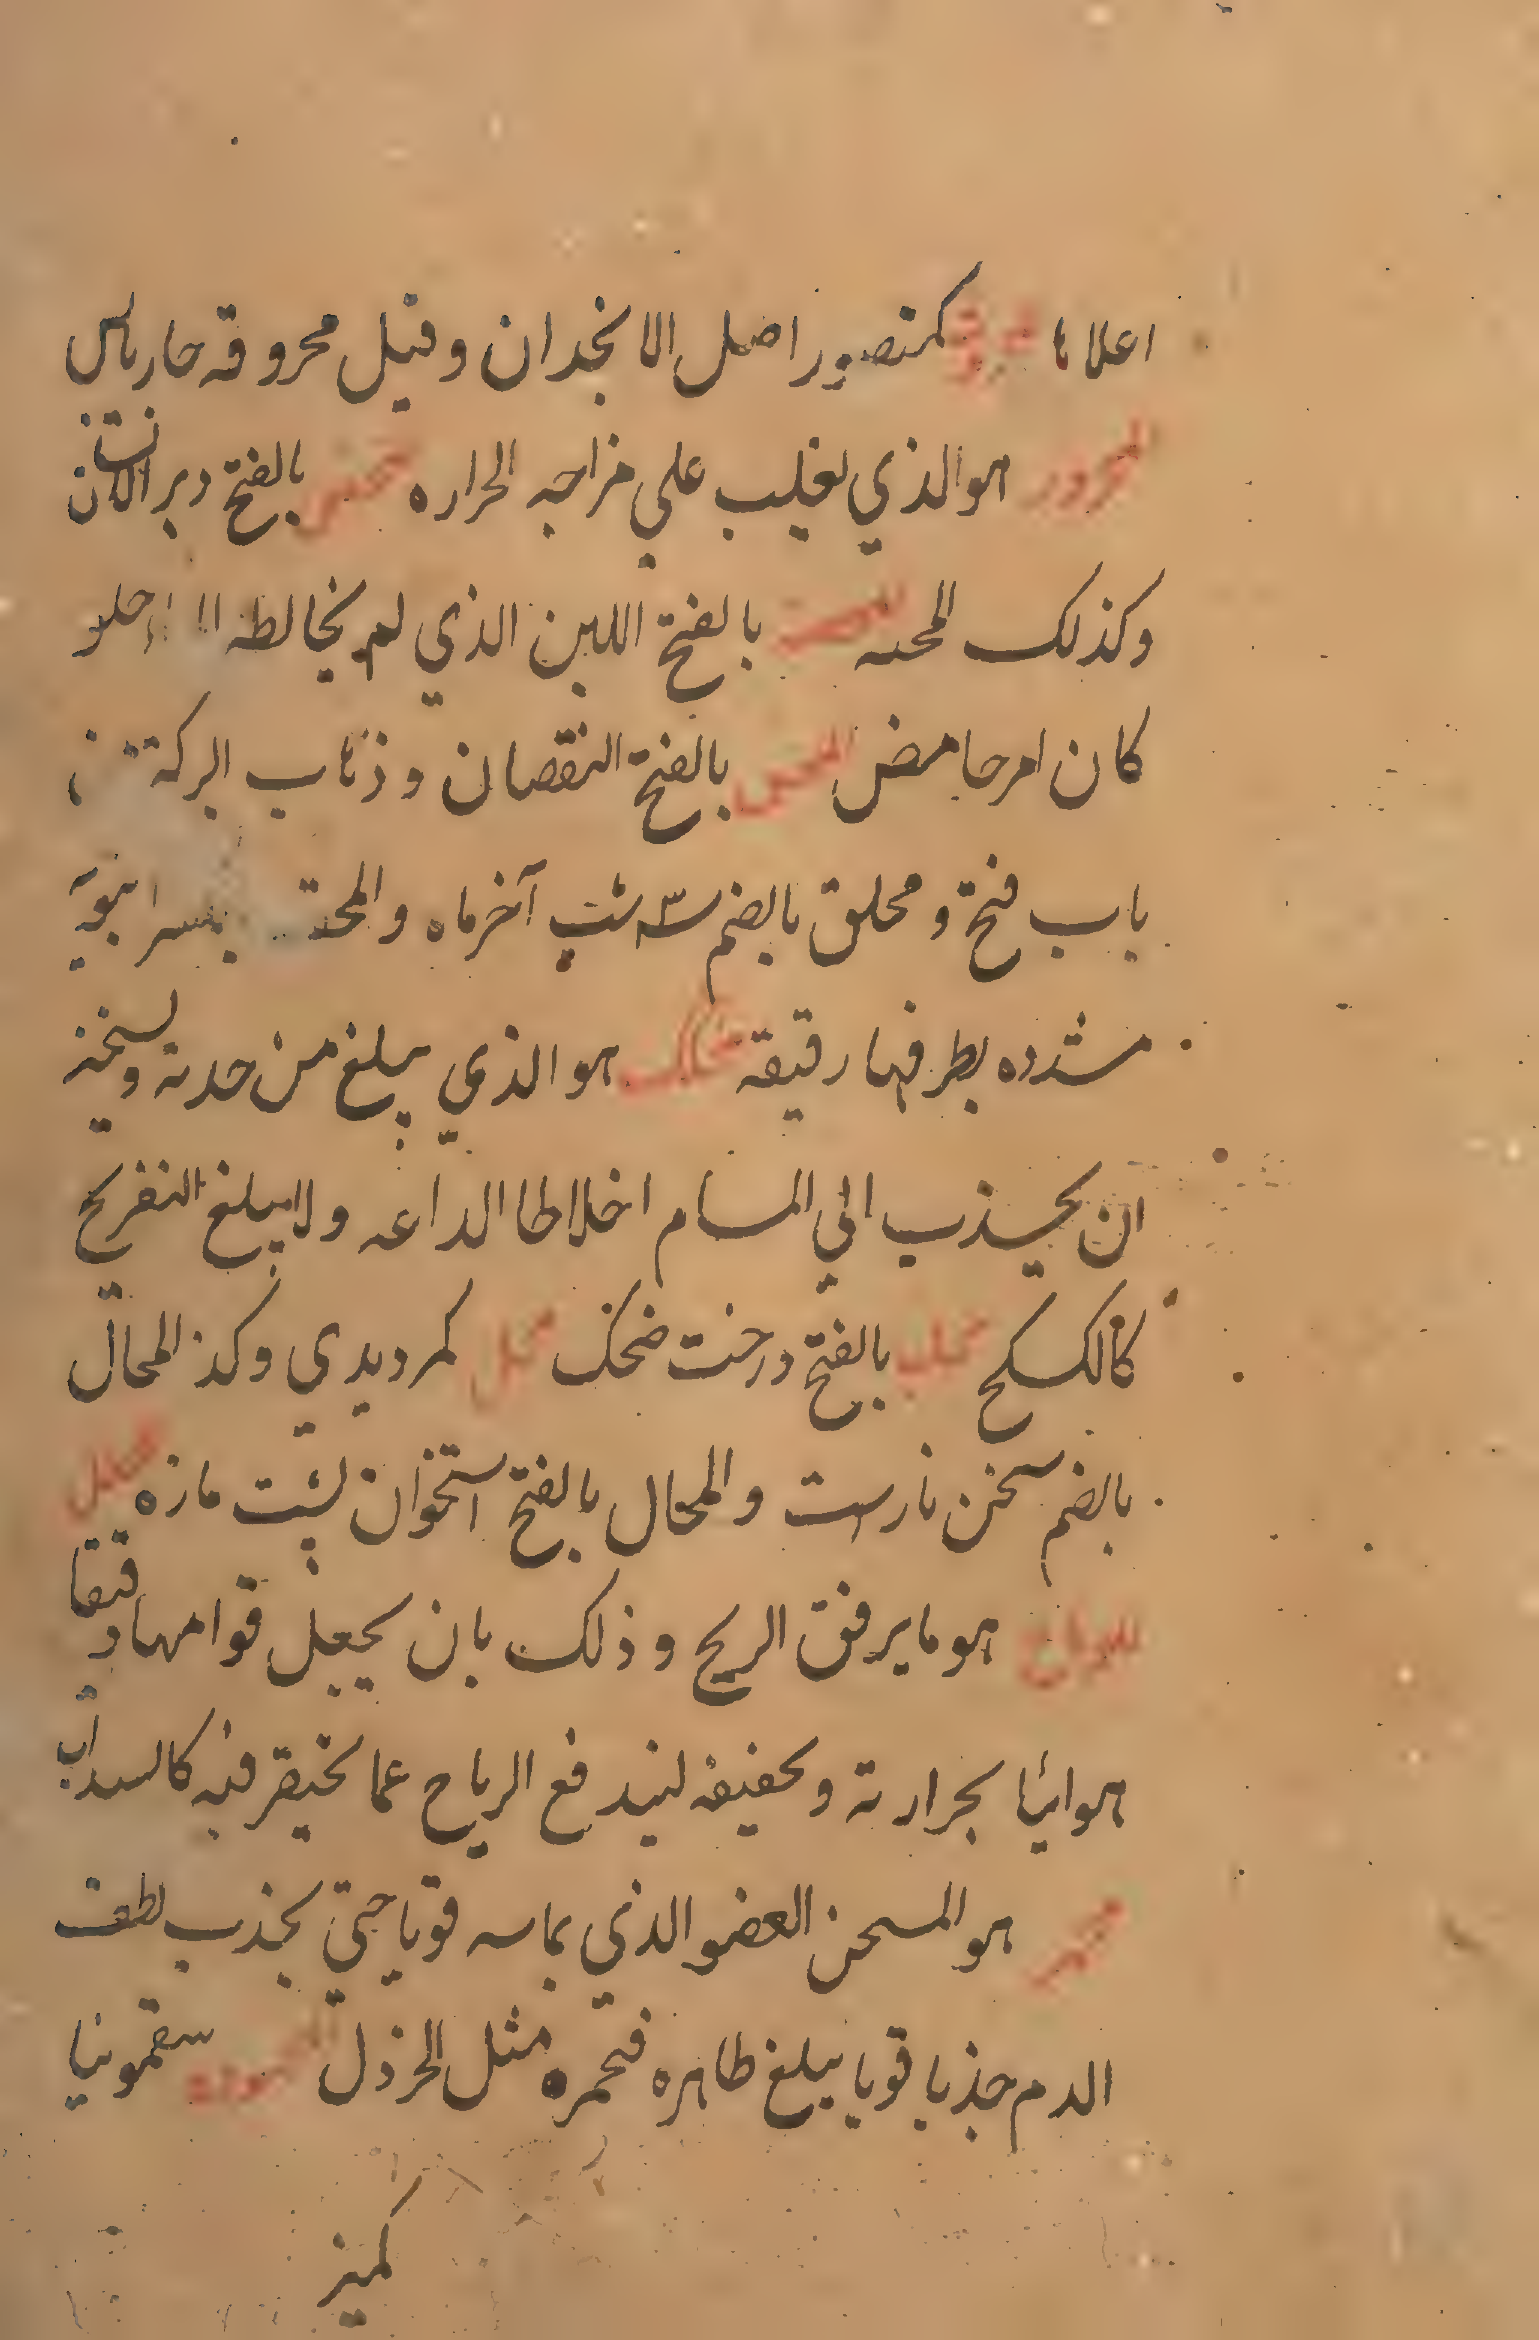 اعلاء كمنصور اصل الانجدان وقيل محروقه حار يابس
المحرور هو الذي يغلب علي مزاجه الحراره محش بالفتح دبر الانسان
وكذلك المحشه المحض بالفتح اللبن الذي لم يخالطه الماء حلو
كان ام حامض المحق بالفتح النقصان وذهاب البركة من
باب فتح ومحاق بالضم سه شب آخر ماه والمحقنه بكسر انبوبة
مشدده بطرفها رقيقه محكك هو الذي يبلغ من حدته وتسخينه
ان يجذب الي المسام اخلاطا لداعه ولا يبلغ التقريح
كالكسكج محلب بالفتح درخت ضحك محل كمرديدي وكذ المحال
بالضم سخن نارست والمحال بالفتح استخوان پشت مازه محلل
الرياح هو ما يرقق الريح وذلك بان يجعل قوامها رقيقا
هوائيا بحرارته وتحفيفه ليندفع الرياح عما يحتقر فيه كالسداب
محمر هو المسخن العضو الذي يماسه قويا حتي يجذب لطف
الدم جذبا قويا يبلغ ظاهره فتحمره مثل الخردل المحموده سقمونيا
كميز